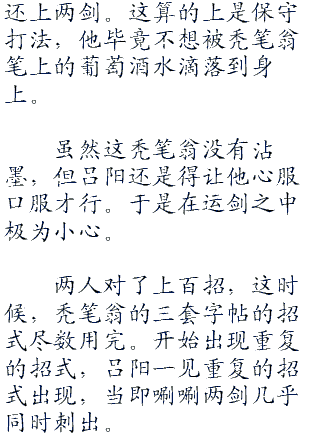 还上两剑。这算的上是保守
打法，他毕竟不想被秃笔翁
笔上的葡萄酒水滴落到身
上。
虽然这秃笔翁没有沾
墨，但吕阳还是得让他心服
口服才行。于是在运剑之中
极为小心。
两人对了上百招，这时
候，秃笔翁的三套字帖的招
式尽数用完。开始出现重复
的招式，吕阳一见重复的招
式出现，当即唰唰两剑几乎
同时刺出。